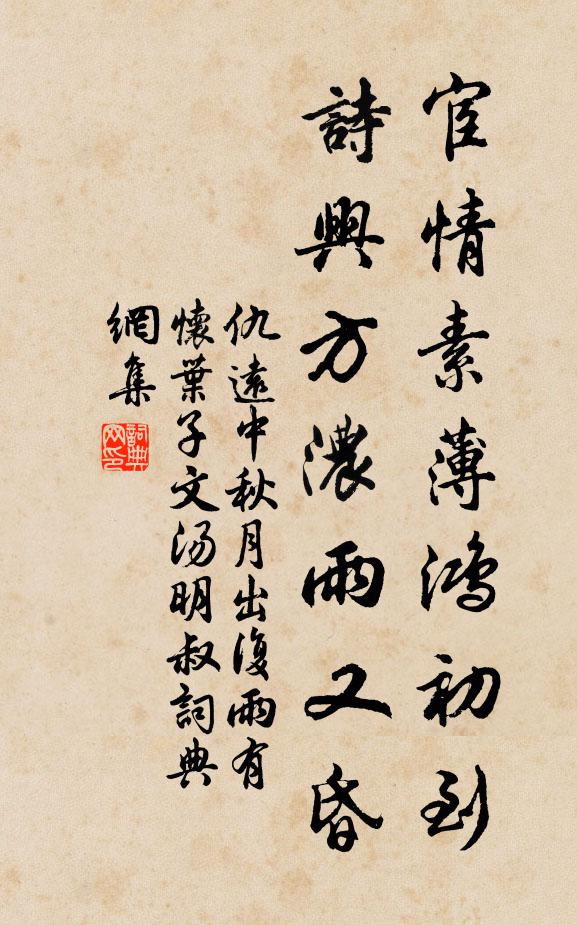 宦情素薄鴻初到
詩興方濃雨又昏
仇遠中秋月出復雨有
懷葉子文湯明叔詞典
網集
詞典
网印